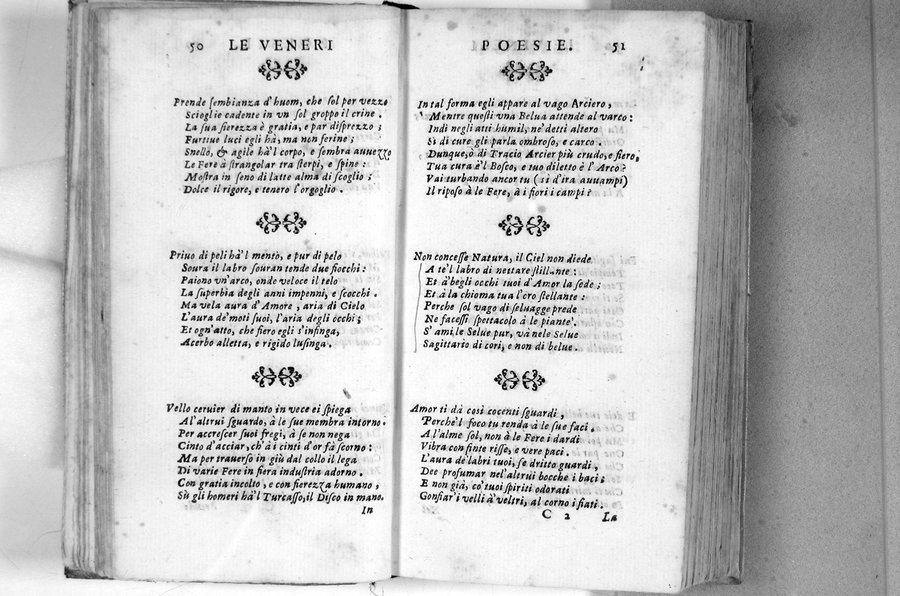 50 LE VENERI
Prende ſembianza d'huom, che ſol per vezzo
Scioglie cadente in vn ſol groppo il crine.
La ſua fierezza è gratia, e par diſprezzo;
Furtiue luci egli hà, ma non ferine;
Snello, & agile hà'l corpo, e ſembra auuezzo
Le Fere à ſtrangolar tra ſterpi, e ſpine:
Moſtra in ſeno di latte alma di ſcoglio;
Dolce il rigore, e tenero l'orgoglio.
Priuo di peli hà'l mento, e pur di pelo
Soura il labro ſouran tende due fiocchi:
Paiono vn'arco, onde veloce il telo
La ſuperbia degli anni impenni, e ſcocchi.
Ma vela aura d'Amore, aria di Cielo
L'aura de'moti ſuoi, l'aria degli occhi;
Et ogn'atto, che fiero egli s'infinga,
Acerbo alletta, e rigido luſinga.
Vello ceruier di manto in vece ei ſpiega
Al'altrui ſguardo, à le ſue membra intorno.
Per accreſcer ſuoi fregi, à ſe non nega
Cinto d'acciar, ch'à i cinti d'or fà ſcorno:
Ma per trauerſo in giù dal collo il lega
Di varie Fere in fiera induſtria adorno.
Con gratia incolto, e con fierezza humano,
Sù gli homeri hà'l Turcaſſo, il Diſco in mano.
In
POESIE. 51
In tal forma egli appare al vago Arciero,
Mentre queſti vna Belua attende al varco:
Indi negli atti humil, ne'detti altero
Sì di cure gli parla ombroſo, e carco.
Dunque, ò di Tracio Arcier più crudo, e fiero,
Tua cura è'l Boſco, e tuo diletto è l'Arco?
Vai turbando ancor tu (sì d'ira auuampi)
Il ripoſo à le Fere, à i fiori i campi?
Non conceſſe Natura, il Ciel non diede
A te'l labro di nettare ſtillante:
Et à begli occhi tuoi d'Amor la ſede;
Et à la chioma tua l'oro ſtellante:
Perche ſol vago di ſeluagge prede
Ne faceſſi ſpettacolo à le piante.
S'ami le Selue pur, và nele Selue
Sagittario di cori, e non di belue.
Amor ti dà così cocenti ſguardi,
Perche'l foco tu renda à le ſue faci.
A l'alme ſol, non à le Fere i dardi
Vibra con finte riſſe, e vere paci.
L'aura de'labri tuoi, ſe dritto guardi,
Dee profumar nel'altrui bocche i baci;
E non già, co'tuoi ſpiriti odorati
Gonfiar'i velli à'veltri, al corno i fiati.
C 2 La